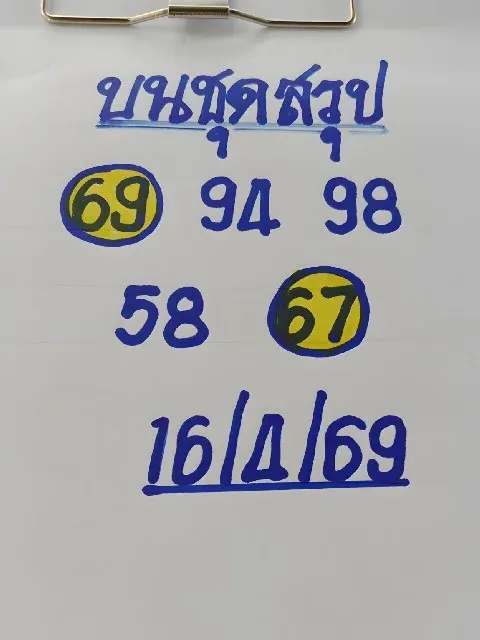 บนชุดสรุป
69 94 98
58 67
16/4/69